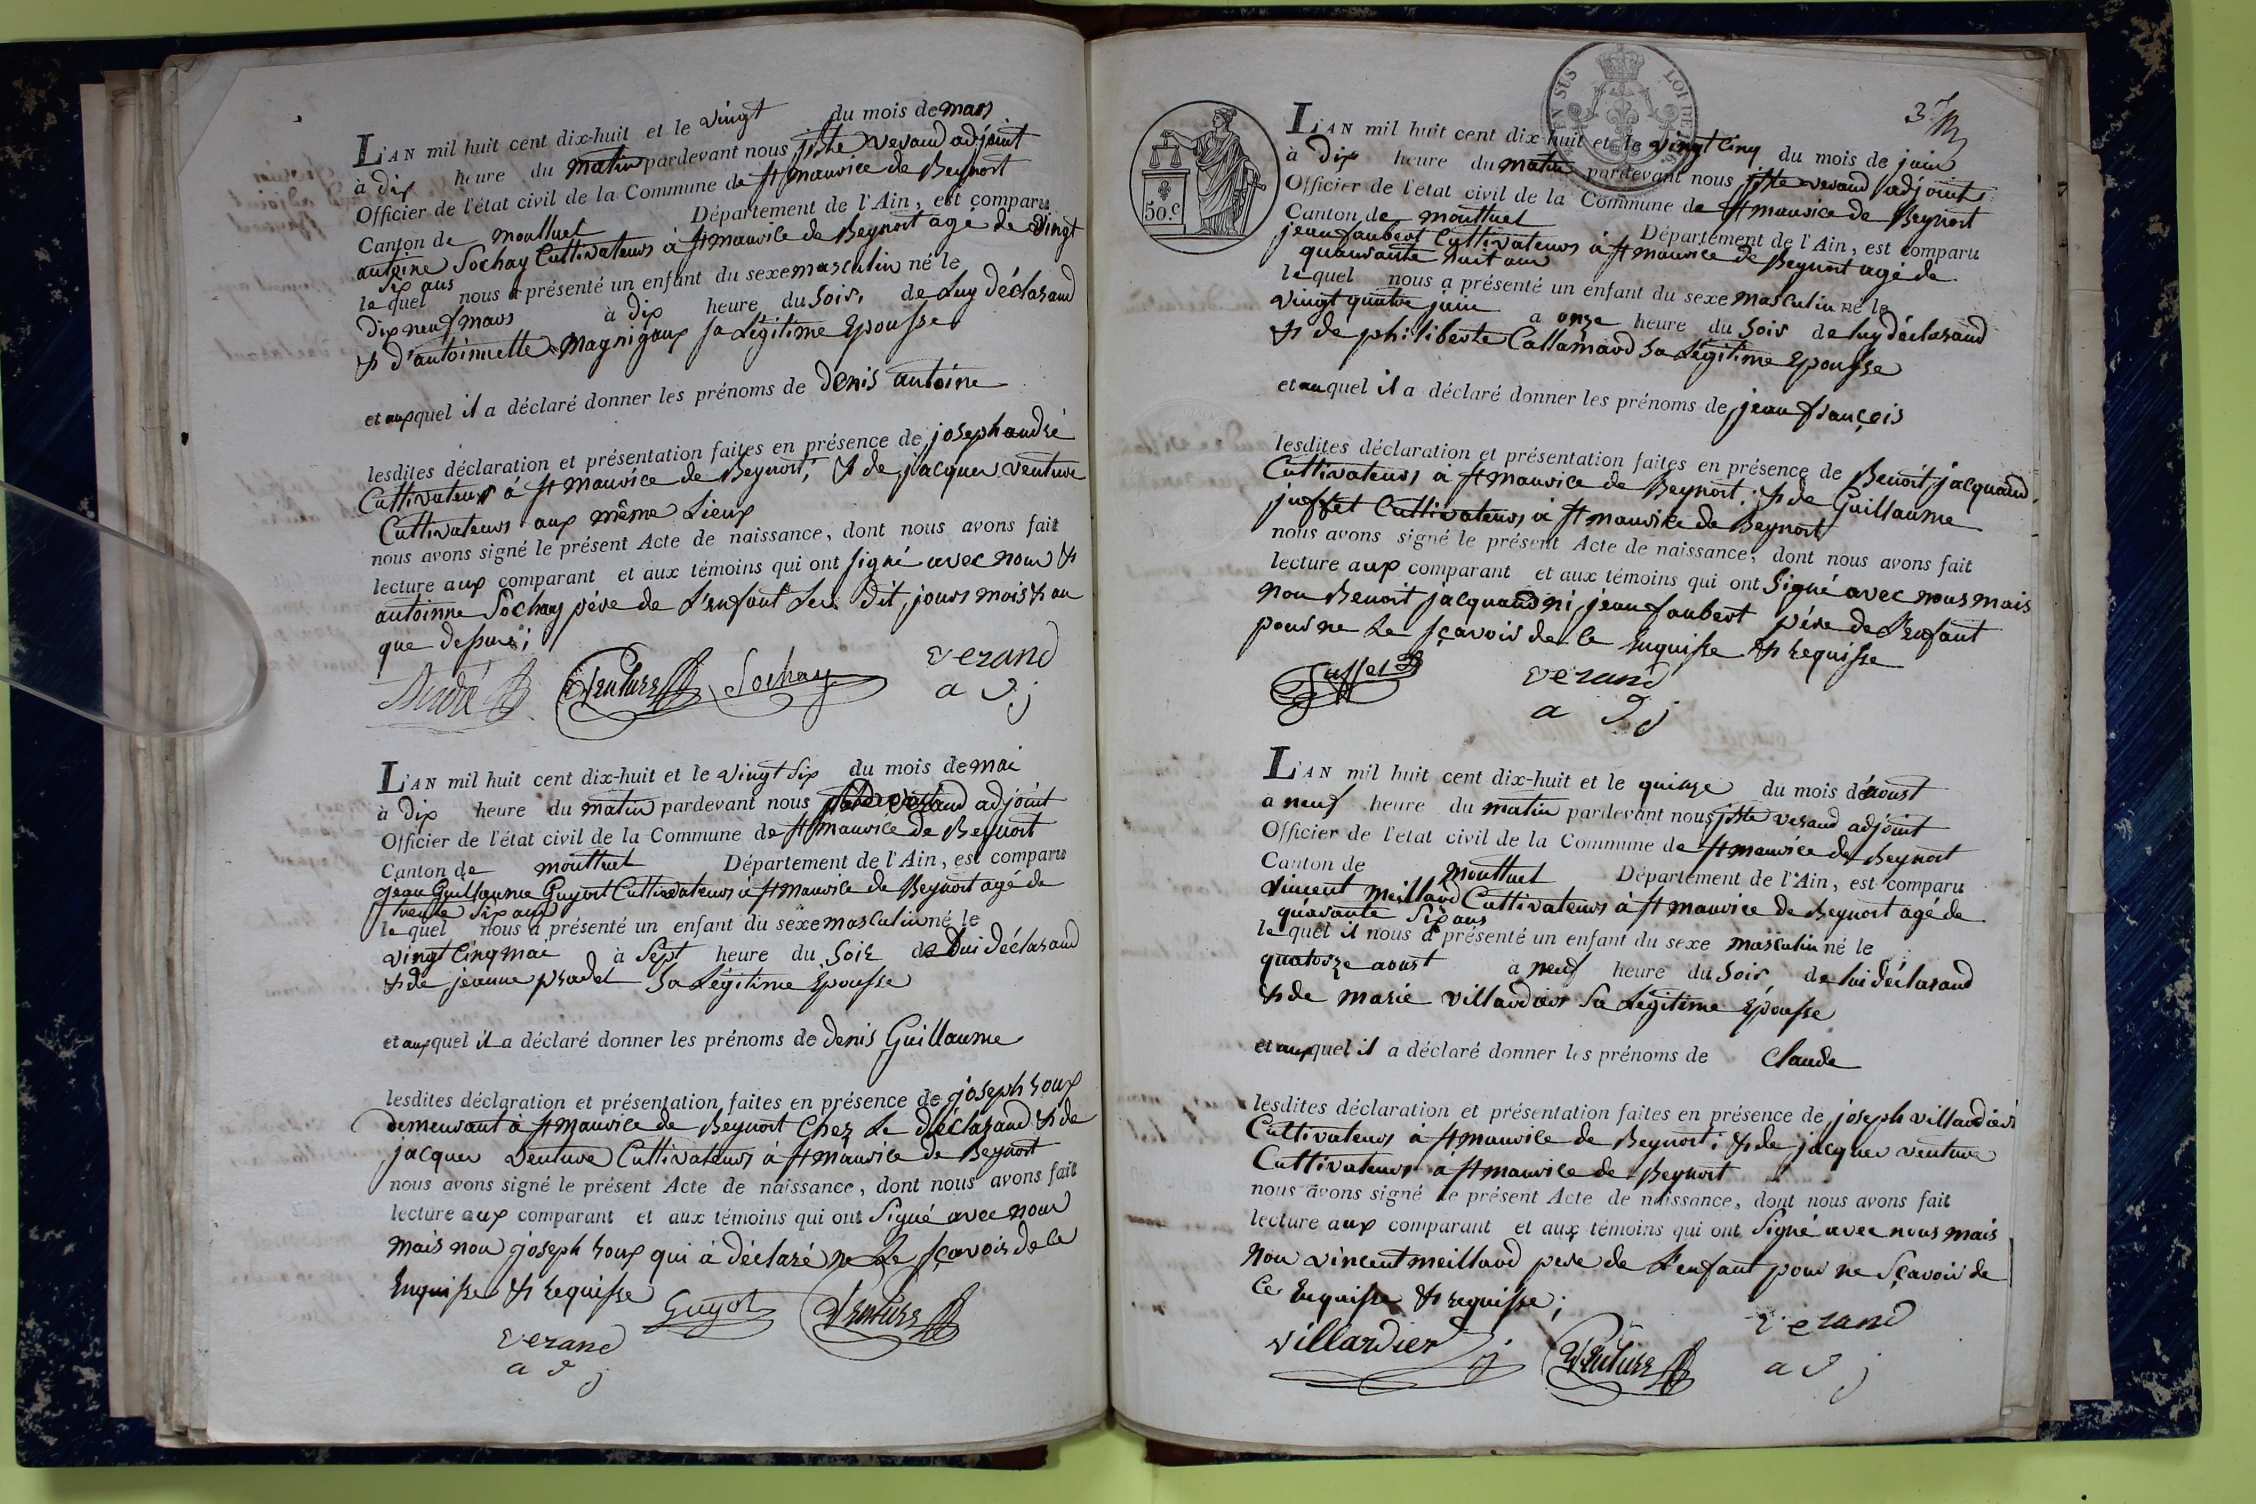 L'AN mil huit cent dix-huit et le vingt du mois de mars
à dix heure du matin pardevant nous jbte verand adjoint
Officier de l'état civil de la Commune de st maurice de Beynost
Canton de montluel Département de l'Ain, est comparu
antoine Sochay Cultivateurs à st maurice de Beynost agé de vingt
six ans
le quel nous a présenté un enfant du sexe masculin né le
dix neuf mars à dix heure du soir, de Luy déclarand
& d'antoinette magnigaux sa Légitime Epousse
et aux quel il a déclaré donner les prénoms de denis antoine
lesdites déclaration et présentation faites en présence de joseph andré
Cultivateur à st maurice de Beynost; & de jacques venture
Cultivateurs aux même Lieux
nous avons signé le présent Acte de naissance, dont nous avons fait
lecture aux comparant et aux témoins qui ont signé avec nous &
antoinne Sochay pére de L'enfant Les dit, jours mois & an
que dessus;
André Venture Sochay verand
adj
L'AN mil huit cent dix-huit et le vingt six du mois de mai
à dix heure du matin pardevant nous verand adjoint
Officier de l'état civil de la Commune de st maurice de Beynost
Canton de montluel Département de l'Ain, est comparu
jean Guillaume Guyot Cultivateurs à st maurice de Beynost agé de
trente six ans
le quel nous a présenté un enfant du sexe masculin né le
vingt cinq mai à sept heure du soir de Lui déclarand
& de jeanne pradel sa Légitime Epousse
et aux quel il a déclaré donner les prénoms de denis Guillaume
lesdites déclaration et présentation faites en présence de joseph roux
demeurant à st maurice de Beynost chez Le déclarand & de
jacques venture Cultivateurs à st maurice de Beynost
nous avons signé le présent Acte de naissance, dont nous avons fait
lecture aux comparant et aux témoins qui ont signé avec nous
mais non joseph roux qui à déclaré ne Le sçavoir de ce
Enquisse & requisse Guyot Venture
verand
adj
3
50.c
L'AN mil huit cent dix-huit et le vingt cinq du mois de juin
à dix heure du matin pardevant nous jbte verand adjoint
Officier de l'état civil de la Commune de st maurice de Beynost
Canton de montluel Département de l'Ain, est comparu
jean faubert Cultivateurs à st maurice de Beynost agé de
quarante huit ans
le quel nous a présenté un enfant du sexe masculin né le
vingt quatre juin a onze heure du soir de luy déclarand
& de philiberte Callamard sa Légitime Epousse
et au quel il a déclaré donner les prénoms de jean françois
lesdites déclaration et présentation faites en présence de Benoit jacquand
Cultivateurs à st maurice de Beynost; & de Guillaume
juffet Cultivateurs à st maurice de Beynost
nous avons signé le présent Acte de naissance, dont nous avons fait
lecture aux comparant et aux témoins qui ont signé avec nous mais
non Benoit jacquand ni jean faubert pére de L'enfant
pour ne Le sçavoir de ce Enquisse & requisse
Juffet verand
adj
L'AN mil huit cent dix-huit et le quinze du mois d'aoust
a neuf heure du matin pardevant nous jbte verand adjoint
Officier de l'état civil de la Commune de st maurice de Beynost
Canton de montluel Département de l'Ain, est comparu
vincent meilland Cultivateurs à st maurice de Beynost agé de
quarante six ans
le quel il nous a présenté un enfant du sexe masculin né le
quatorze aoust à neuf heure du soir de lui déclarand
& de marie villardier sa Légitime Epousse
et aux quel il a déclaré donner les prénoms de Claude
lesdites déclaration et présentation faites en présence de joseph villardier
Cultivateurs à st maurice de Beynost; & de jacques venture
Cultivateurs à st maurice de Beynost
nous avons signé le présent Acte de naissance, dont nous avons fait
lecture aux comparant et aux témoins qui ont signé avec nous mais
non vincent meilland pere de L'enfant pour ne sçavoir de
ce Enquisse & requisse;
villardier Venture verand
adj